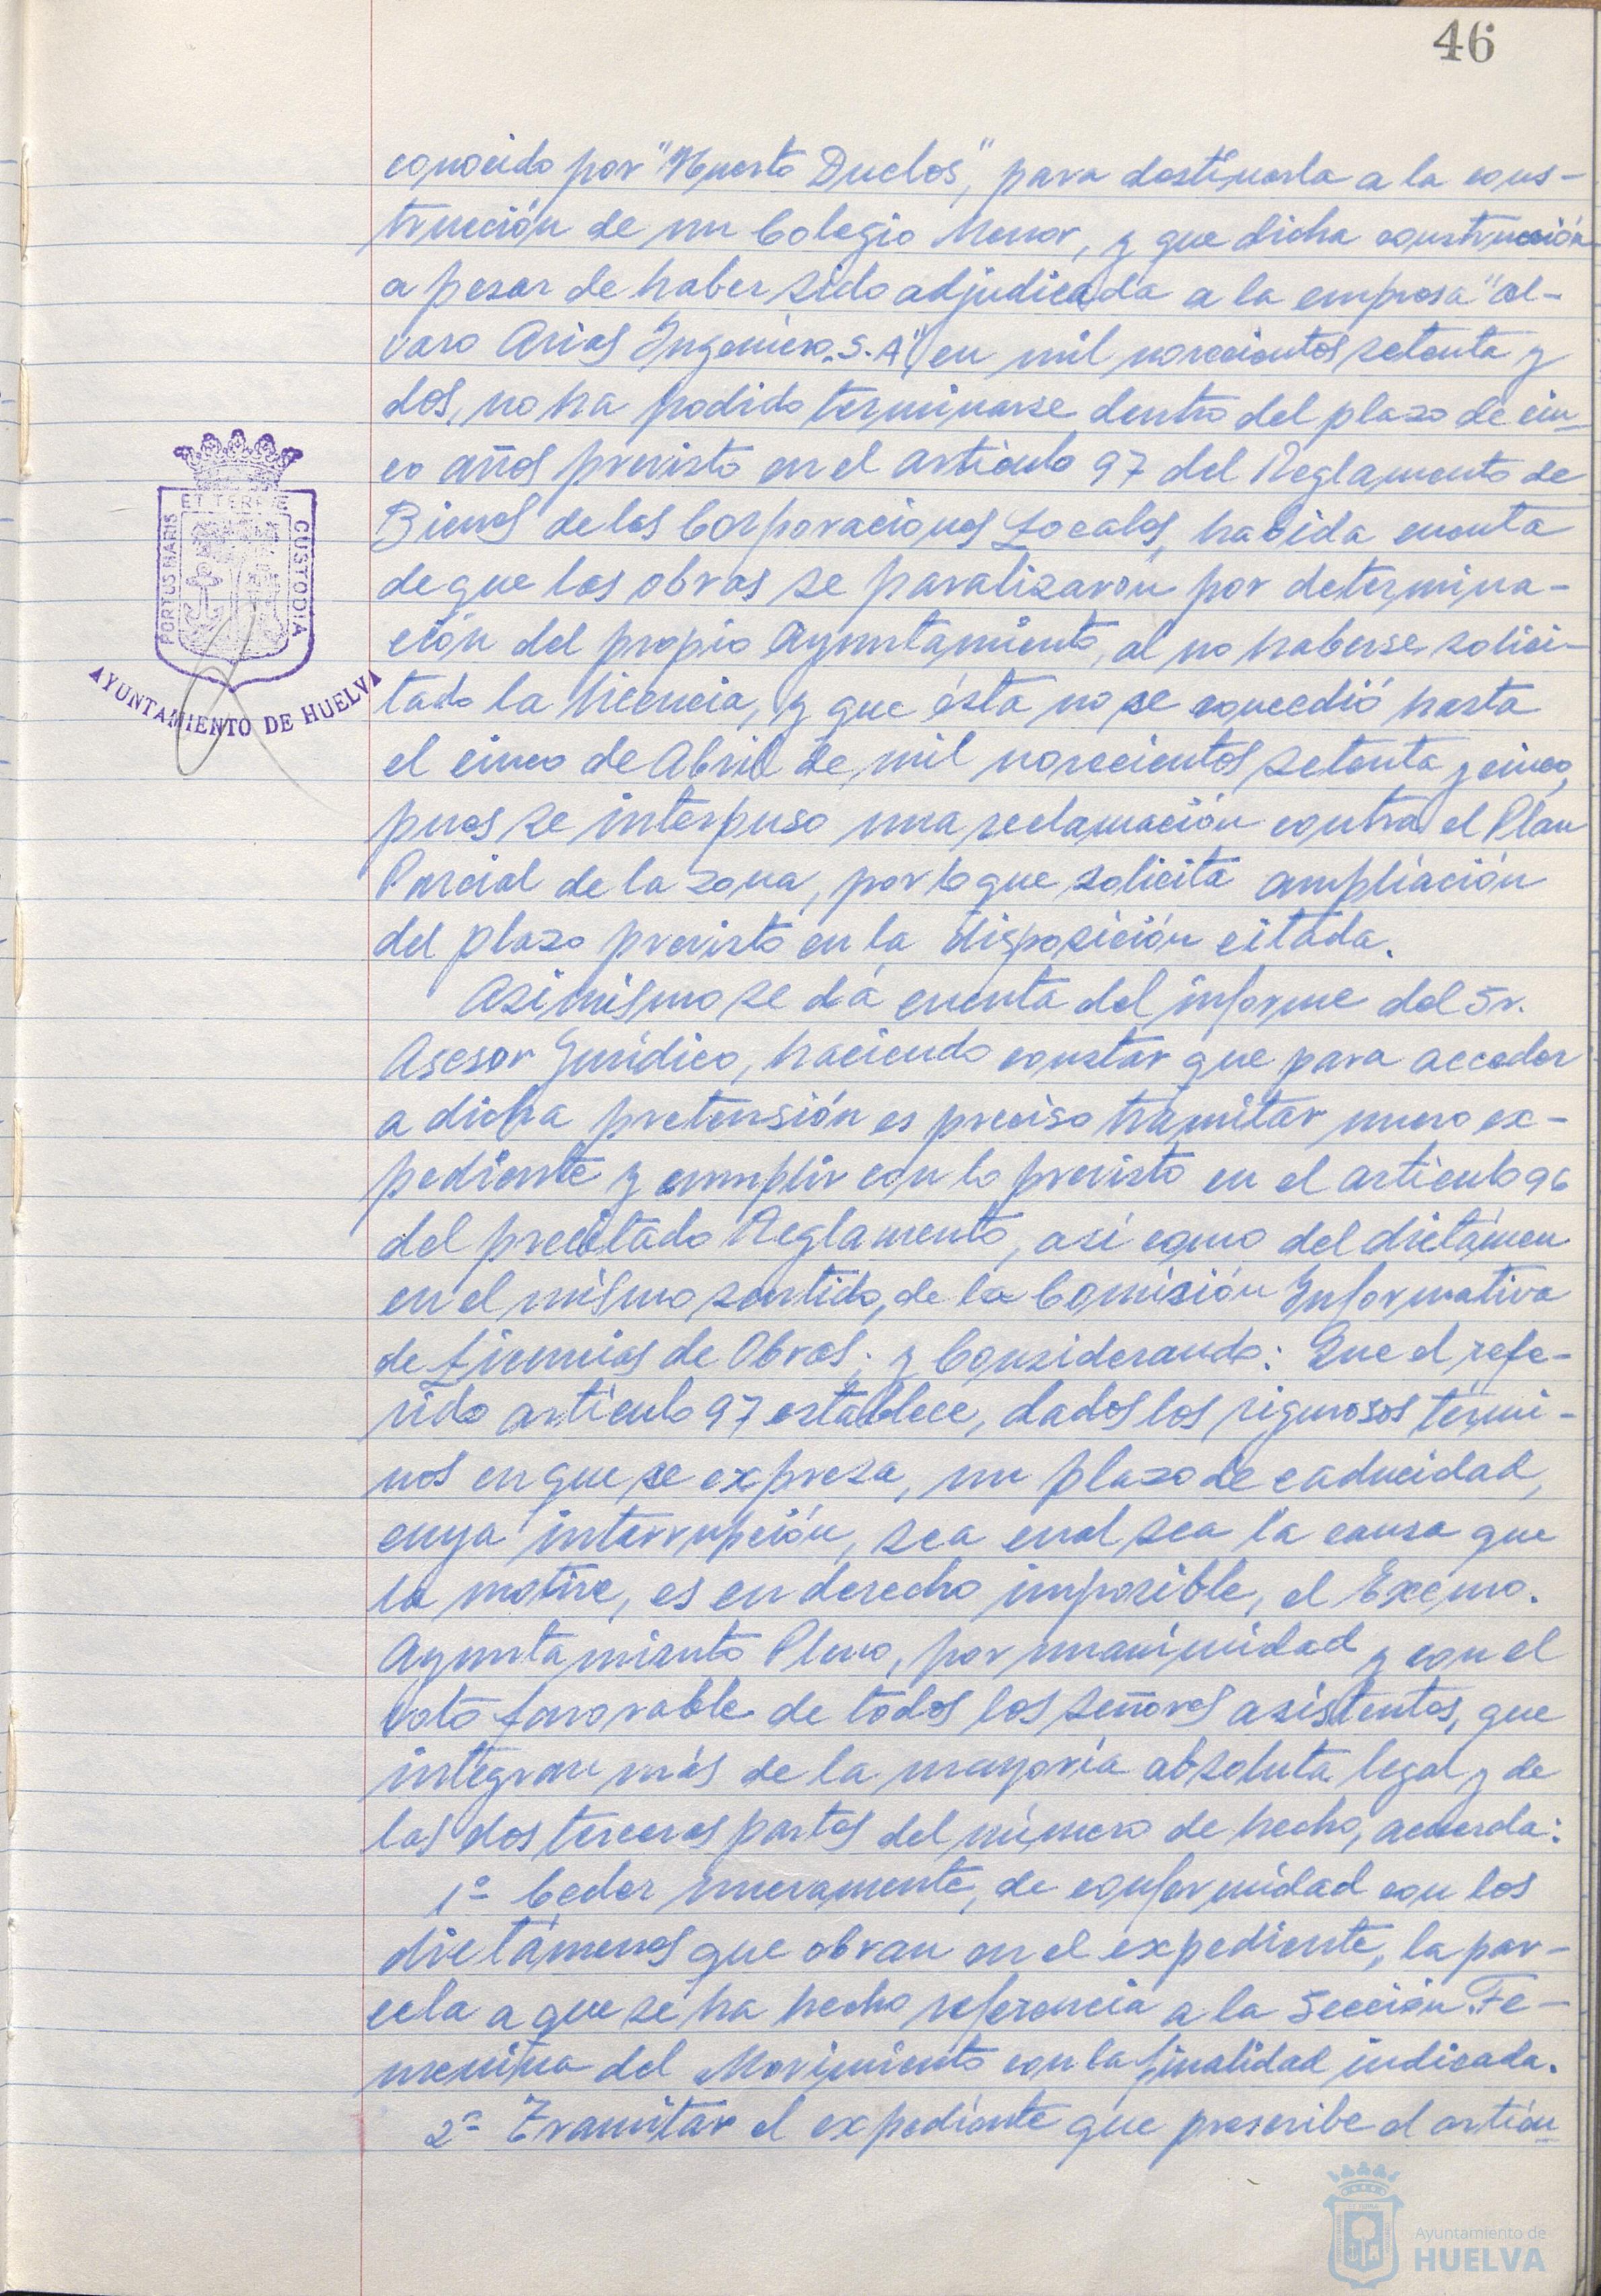 46
conocido por "Huerto Duclós", para destinarla a la cons-
trucción de un Colegio Menor, y que dicha construcción
a pesar de haber sido adjudicada a la empresa "Al-
varo Arias Ingeniero. S. A", en mil novecientos setenta y
dos, no ha podido terminarse dentro del plazo de cin-
co años previsto en el artículo 97 del Reglamento de
Bienes de las Corporaciones Locales, habida cuenta
de que las obras se paralizaron por determina-
ción del propio Ayuntamiento, al no haberse solici-
tado la licencia, y que ésta no se concedió hasta
el cinco de Abril de mil novecientos setenta y cinco,
pues se interpuso una reclamación contra el Plan
Parcial de la zona, por lo que solicita ampliación
del plazo previsto en la disposición citada.
Asimismo se dá cuenta del informe del Sr.
Asesor Jurídico, haciendo constar que para acceder
a dicha pretensión es preciso tramitar nuevo ex-
pediente y cumplir con lo previsto en el artículo 96
del precitado Reglamento, así como del dictámen
en el mismo sentido, de la Comisión Informativa
de Licencias de Obras; y Considerando: Que el refe-
rido artículo 97 establece, dados los rigurosos térmi-
nos en que se expresa, un plazo de caducidad,
cuya interrupción, sea cual sea la causa que
la motive, es en derecho imposible, el Excmo.
Ayuntamiento Pleno, por unanimidad y con el
voto favorable de todos los señores asistentes, que
integran más de la mayoría absoluta legal y de
las dos terceras partes del número de hecho, acuerda:
1º- Ceder nuevamente, de conformidad con los
dictámenes que obran en el expediente, la par-
cela a que se ha hecho referencia a la Sección Fe-
menina del Movimiento con la finalidad indicada.
2º- Tramitar el expediente que prescribe el artícu-
PORTUS MARIS
ET TERRÆ
CUSTODIA
AYUNTAMIENTO DE HUELVA
Ayuntamiento de
HUELVA